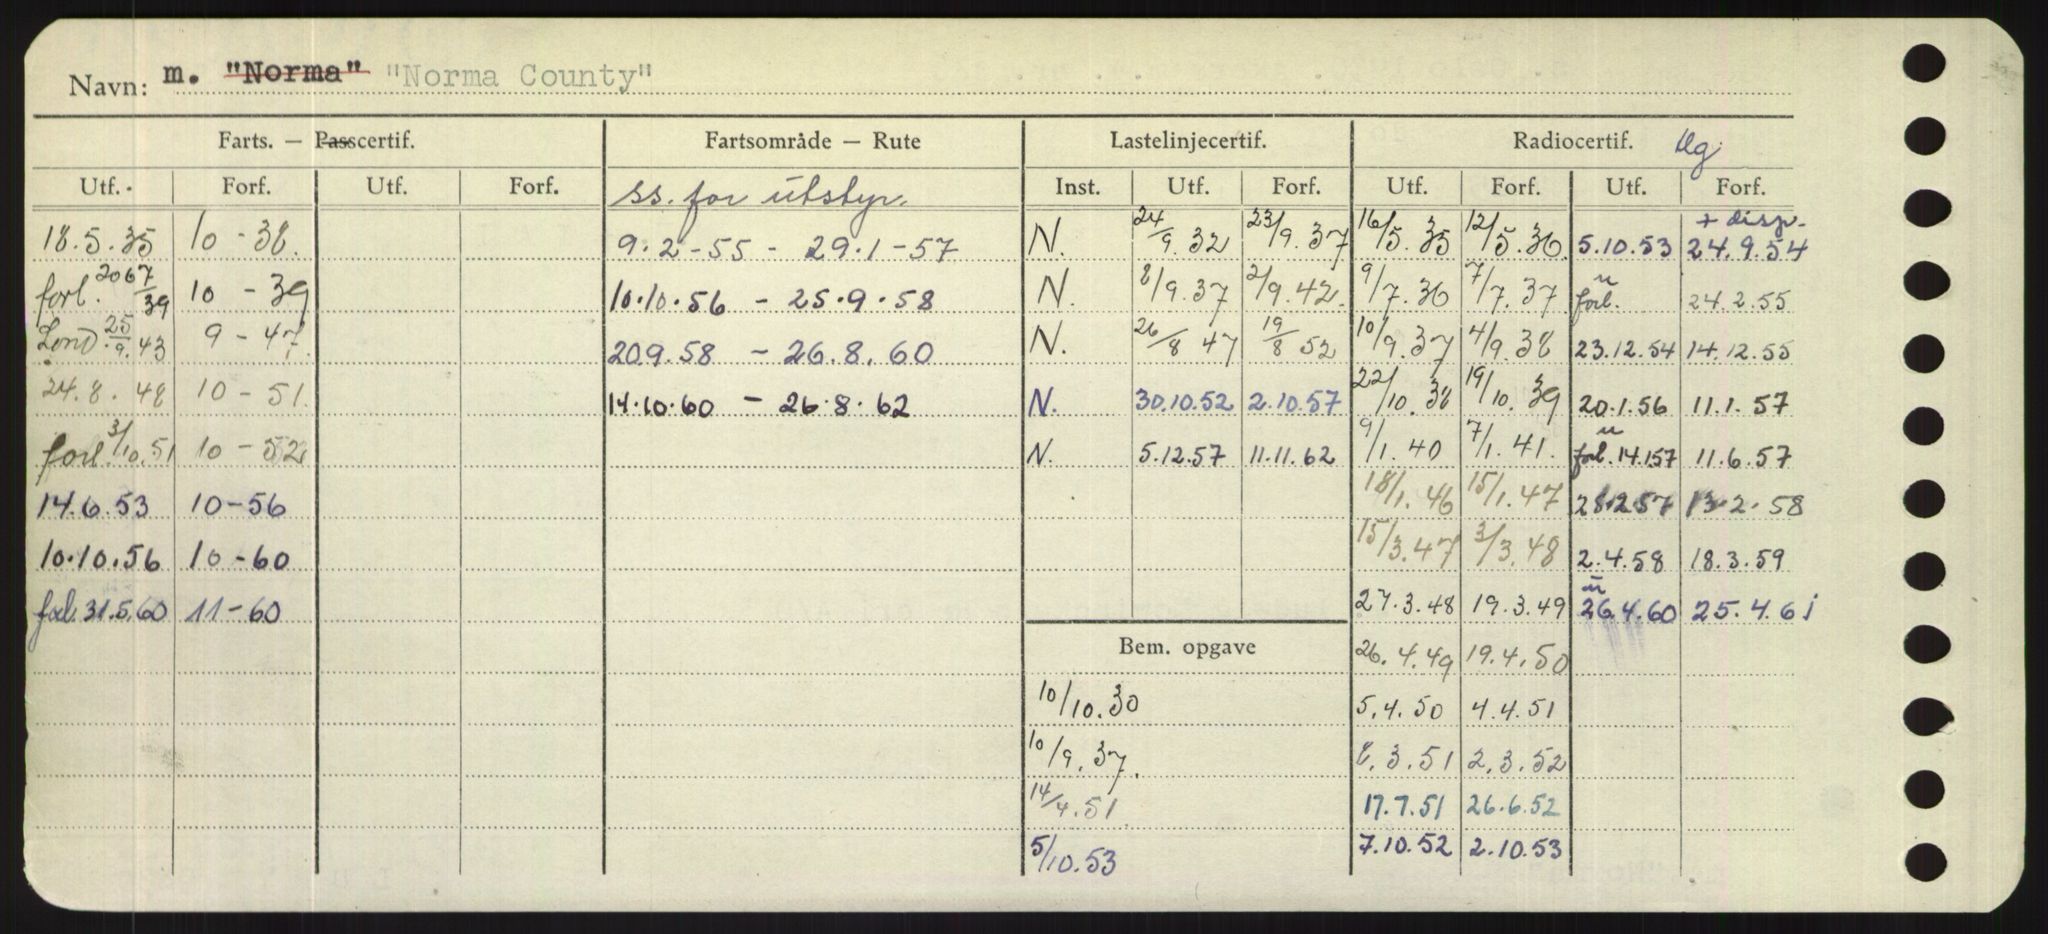 Navn: m. "Norma" "Norma County"
Farts. — Passcertif. Fartsområde — Rute Lastelinjecertif. Radiocertif. Ug.
Utf. Forf. Utf. Forf. ss. for utstyr. Inst. Utf. Forf. Utf. Forf. Utf. Forf.
+ disp.
18.5.35 10-38. 9.2-55 - 29.1-57 N. 24/9.32 23/9.37 16/5.35 12/5.36 5.10.53 24.9.54
forl. 20 6 7/39 10 - 39 10.10.56 - 25.9.58 N. 8/9.37 2/9.42. 9/7.36 7/7.37 u forl. 24.2.55
Lond. 25/9.43 9-47 20.9.58 - 26.8.60 N. 26/8 47 19/8 52 10/9.37 4/9.38 23.12.54 14.12.55
24.8.48 10-51. 14.10.60 - 26.8.62 N. 30.10.52 2.10.57 22/10.38 19/10.39 20.1.56 11.1.57
forl. 3/10.51 10-52 N. 5.12.57 11.11.62 9/1.40 7/1.41. u forl. 14.1.57 11.6.57
14.6.53 10-56 18/1.46 15/1.47 28.2.57 13.2.58
10.10.56 10-60 15/3.47 3/3.48 2.4.58 18.3.59
forl. 31.5.60 11-60 27.3.48 19.3.49 u 26.4.60 25.4.61
Bem. opgave 26.4.49 19.4.50
10/10.30 5.4.50 4.4.51
10/9.37. 8.3.51 2.3.52
14/4.51. 17.7.51 26.6.52
5/10.53 7.10.52 2.10.53